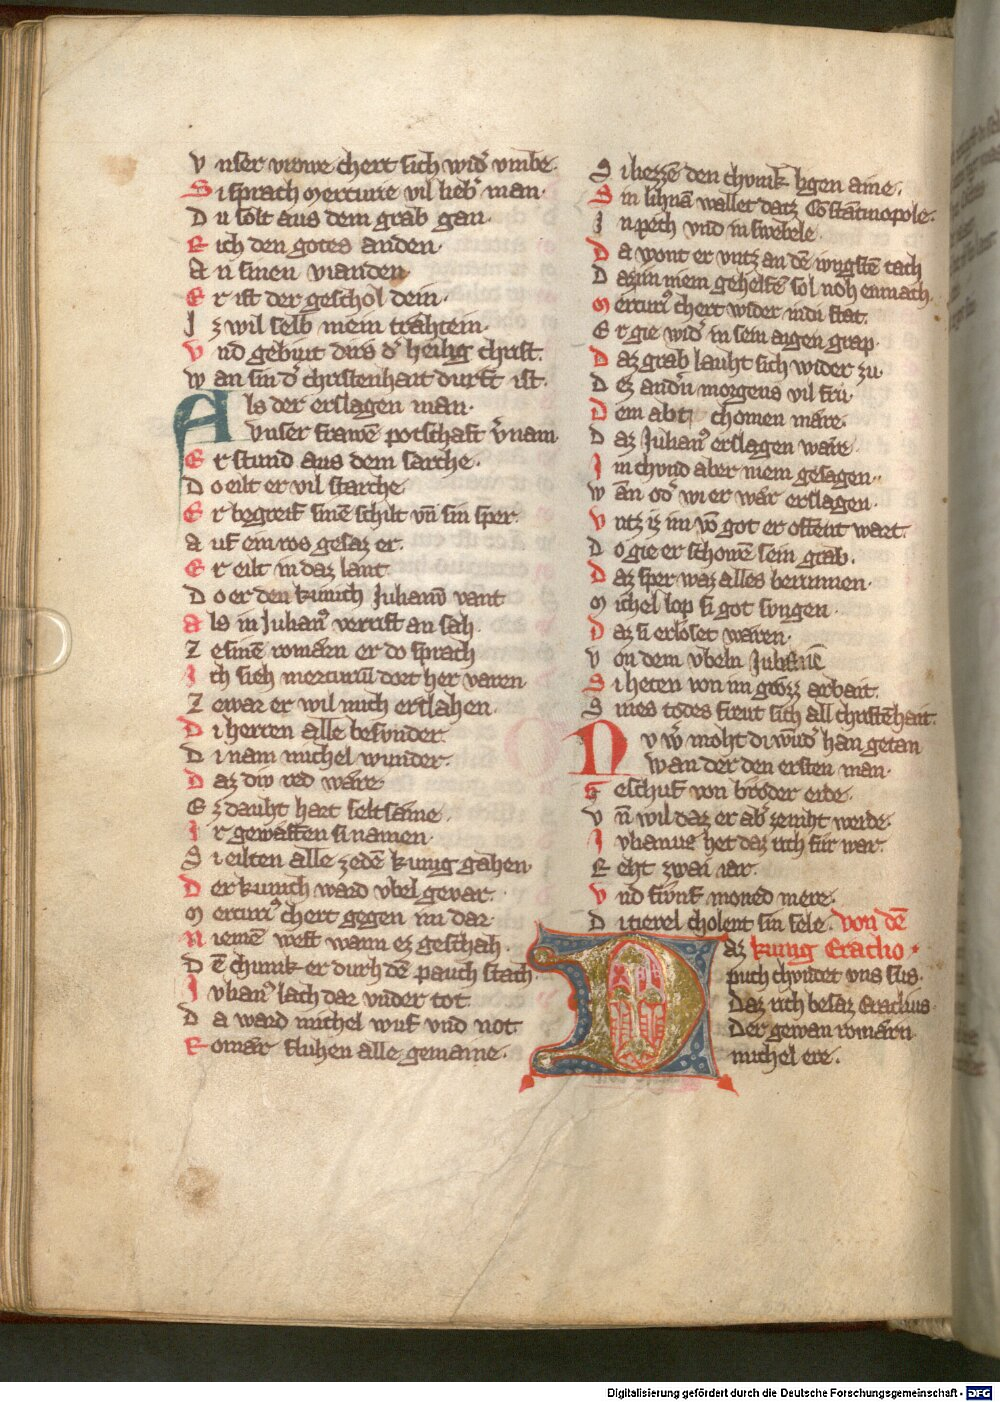 Vnser vrowe chert sich wid̾ vmbe·
Si sprach Mercurie vil lieb̾ man·
Du solt aus dem grab gan·
Rich den gotes anden·
An sinen vianden·
Er ist der geschol dein·
Iz wil selb mein træhtein·
Vnd gebiut dirs d̾ heilig christ·
Wan sin d̾ christenhait durft ist·
Als der erslagen man·
Vnser frawē potschaft v̾nam
Er stund aus dem sarche·
Do eilt er vil starche
Er begreif sinē schilt vn̄ sin sper·
Auf ein ros gesaz er·
Er eilt in daz lant
Do er den kunich Julianū vant
Als in Julian⁹ verrist an sah
Ze sinē romærn er do sprach
Ich sieh mercuriū dort her varen
Zewar er wil mich erslahen·
Di herren alle besvnder
Di nam michel wunder·
Daz div red wære·
Ez dauht hart seltsæine·
Ir gewæffen si namen·
Si eilten alle zedē kunig gahen·
Der kunich ward vbel gevar·
Mercuri⁹ chert gegen im dar·
Niemē west wann ez geschah·
Dē chunik er durh dē pauch stach
Iulian⁹ lach dar vnder tot
Da ward michel wuf vnd not
Romær fluhen alle gemaine·
Si liezzē den chvnik ligen aine·
Sin lihnā wallet datz Cōstātinopole·
In pech vnd in swebele
Da wont er vntz an dē iungstē tach
Daz im niem gehelfē sol noh enmach·
Mercuri⁹ chert wider in di stat·
Er gie wid̾ in sein aigen grap·
Daz grab lauht sich wider zu
Dez and̾n morgens vil fru·
Dem abt chomen mære·
Daz Julian⁹ erslagen wære·
Im chvnd aber niem gesagen··
Wān od̾ wi er wær erslagen·
Vntz iz im vō got er offent wart·
Do gie er schowē sein grab·
Daz sper waz alles berunnen·
Michel lop si got svngen·
Daz si erloset waren·
Von dem vbeln Julianē
Si heten von im grozz arbait·
Sines todes frevt sich all christēhait·
Nv w̾ moht di wūd̾ han getan
Wan der den ersten man·
Geschuf von broder erde·
Vn̄ wil daz er ab̾ zeniht werde·
Iulianus het daz rich fur war
Reht zwai iar·
Vnd funf moned mere·
Di tievel cholent sin sele· von dē
Daz kunig Eraclio·
puch chvndet vns sus·
Daz rich besaz Eraclius·
Der gewan romærn
michel ere·
Digitalisierung gefördert durch die Deutsche Forschungsgemeinschaft - DFG